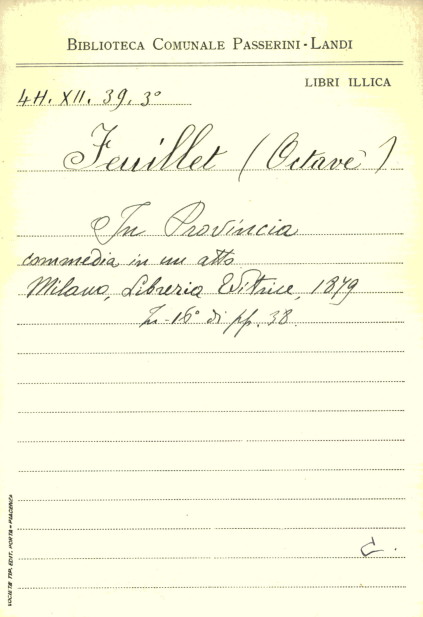 BIBLIOTECA COMUNALE PASSERINI-LANDI
LIBRI ILLICA
4H. XII. 39. 3°
Feuillet (Octave)
In Provincia
commedia in un atto
Milano, Libreria Editrice, 1879
In-16° di pp. 38.
C.
SOCIETÀ TIP. EDIT. PORTA - PIACENZA